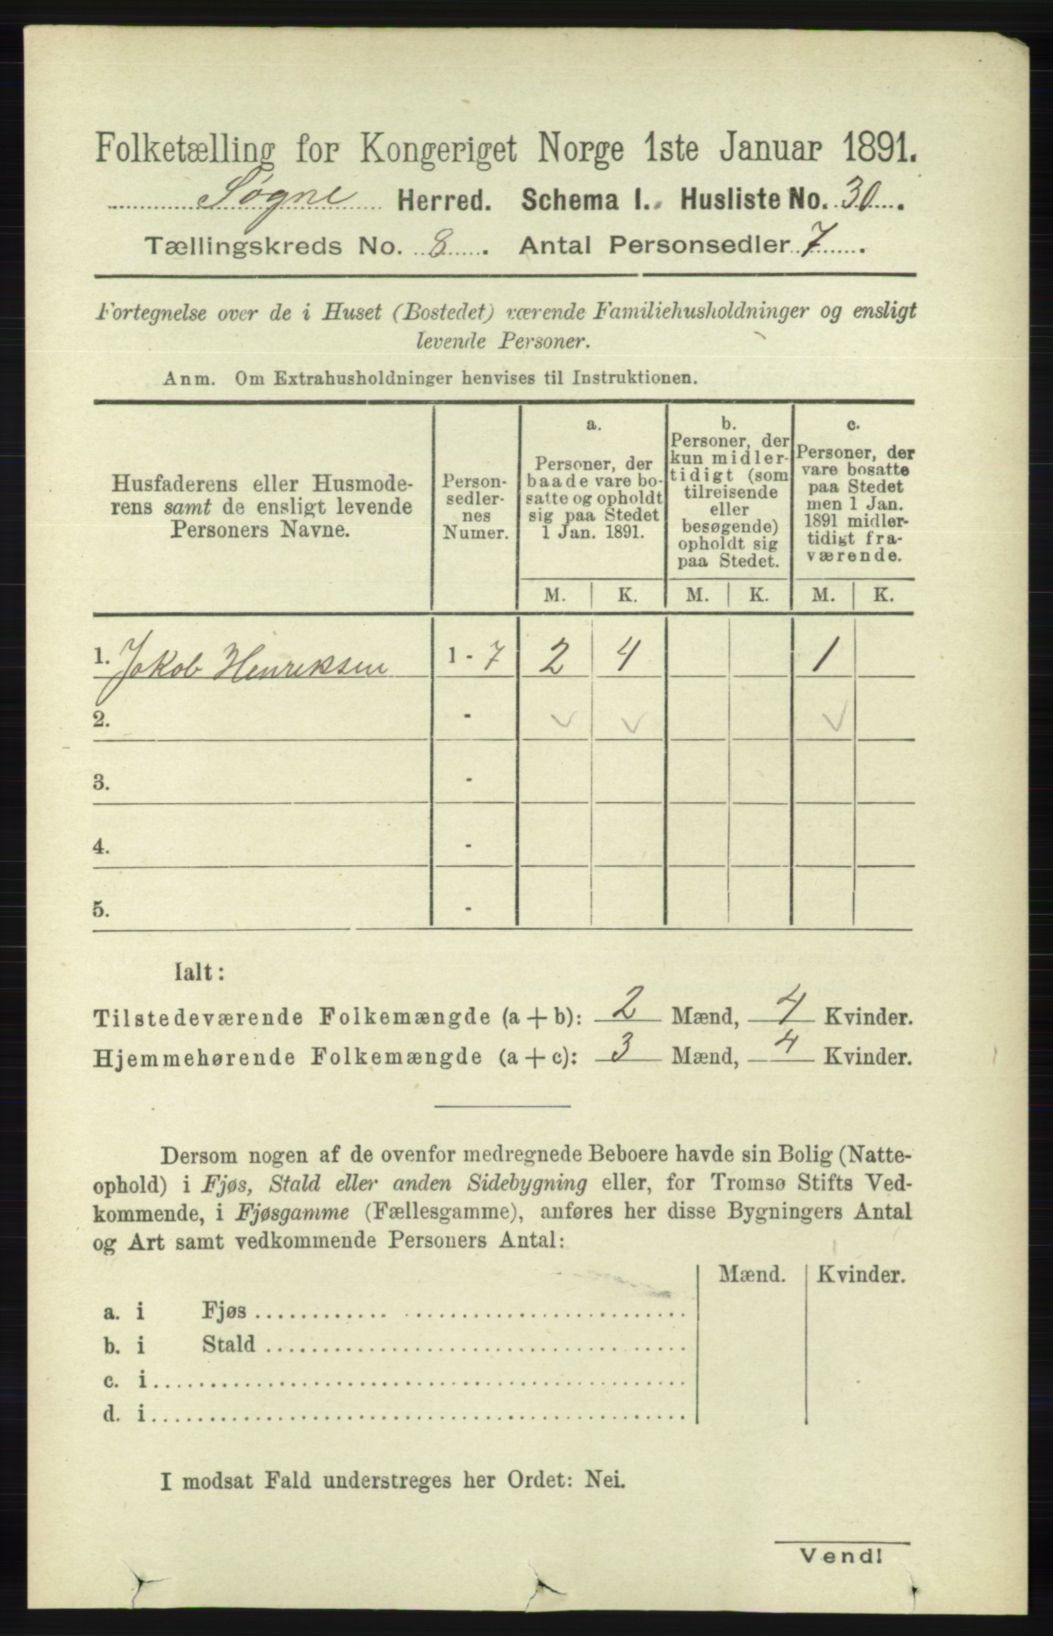 Folketælling for Kongeriget Norge 1ste Januar 1891.
Søgne Herred. Schema I. Husliste No. 30.
Tællingskreds No. 8. Antal Personsedler 7.
Fortegnelse over de i Huset (Bostedet) værende Familiehusholdninger og ensligt
levende Personer.
Anm. Om Extrahusholdninger henvises til Instruktionen.
Husfaderens eller Husmode-
rens samt de ensligt levende
Personers Navne.
Person-
sedler-
nes
Numer.
a.
Personer, der
baade vare bo-
satte og opholdt
sig paa Stedet
1 Jan. 1891.
b.
Personer, der
kun midler-
tidigt (som
tilreisende
eller
besøgende)
opholdt sig
paa Stedet.
c.
Personer, der
vare bosatte
paa Stedet
men 1 Jan.
1891 midler-
tidigt fra-
værende.
M. K. M. K. M. K.
1. Jakob Henriksen 1 - 7 2 4 1
2. -
3. -
4. -
5. -
Ialt:
Tilstedeværende Folkemængde (a + b): 2 Mænd, 4 Kvinder.
Hjemmehørende Folkemængde (a + c): 3 Mænd, 4 Kvinder.
Dersom nogen af de ovenfor medregnede Beboere havde sin Bolig (Natte-
ophold) i Fjøs, Stald eller anden Sidebygning eller, for Tromsø Stifts Ved-
kommende, i Fjøsgamme (Fællesgamme), anføres her disse Bygningers Antal
og Art samt vedkommende Personers Antal:
Mænd. Kvinder.
a. i Fjøs
b. i Stald
c. i
d. i
I modsat Fald understreges her Ordet: Nei.
Vend!